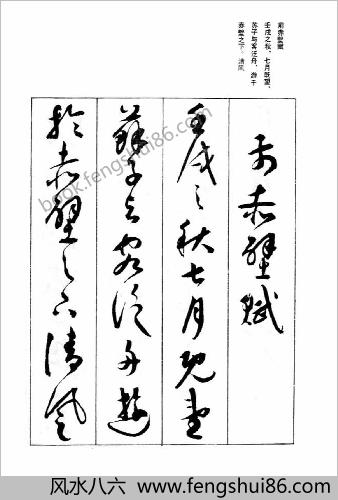 前赤壁赋
壬戌之秋，七月既望，
苏子与客泛舟，游于
赤壁之下。清风
前赤壁賦
壬戌之秋七月既望
蘇子与客泛舟遊
於赤壁之下清風
book.fengshui86.com
风水八六 www.fengshui86.com